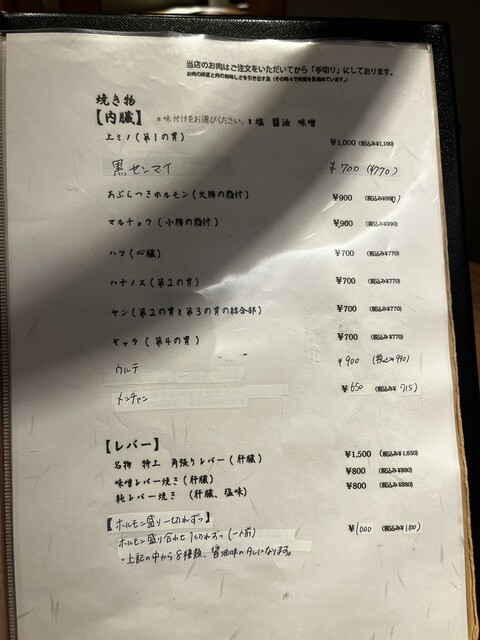 当店のお肉はご注文をいただいてから「手切り」にしております。
お肉の鮮度と肉の美味しさを引き出す為（その時々で肉質を見極めています。）
焼き物
【内臓】 ＊味付けをお選びください。：塩 醤油 味噌
上ミノ（第1の胃） ¥1,000（税込み¥1,100）
黒センマイ ¥700（¥770）
あぶらつきホルモン（大腸の脂付） ¥900（税込み¥990）
マルチョウ（小腸の脂付） ¥900（税込み¥990）
ハツ（心臓） ¥700（税込み¥770）
ハチノス（第2の胃） ¥700（税込み¥770）
ヤン（第2の胃と第3の胃の結合部） ¥700（税込み¥770）
ギャラ（第4の胃） ¥700（税込み¥770）
ウルテ ¥900（税込み¥990）
メンチャン ¥650（税込み¥715）
【レバー】
名物 特上 角張りレバー（肝臓） ¥1,500（税込み¥1,650）
味噌レバー焼き（肝臓） ¥800（税込み¥880）
純レバー焼き （肝臓、塩味） ¥800（税込み¥880）
【ホルモン盛り一切れずつ】
ホルモン盛り合わせ1切れずつ（一人前） ¥1000（税込み¥1100）
・上記の中から8種類、醤油味のタレになります。